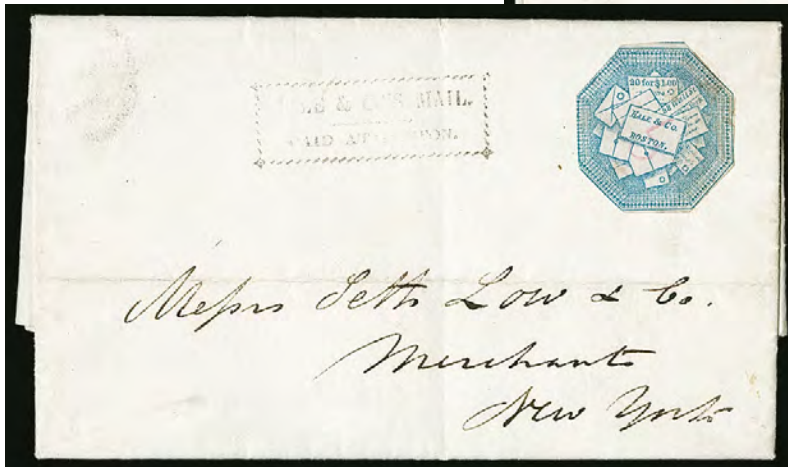 & CO'S MAIL.
PAID AT
20 for $1.00
HALE & CO.
BOSTON.
Messrs Seth Low & Co.
Merchants
New York